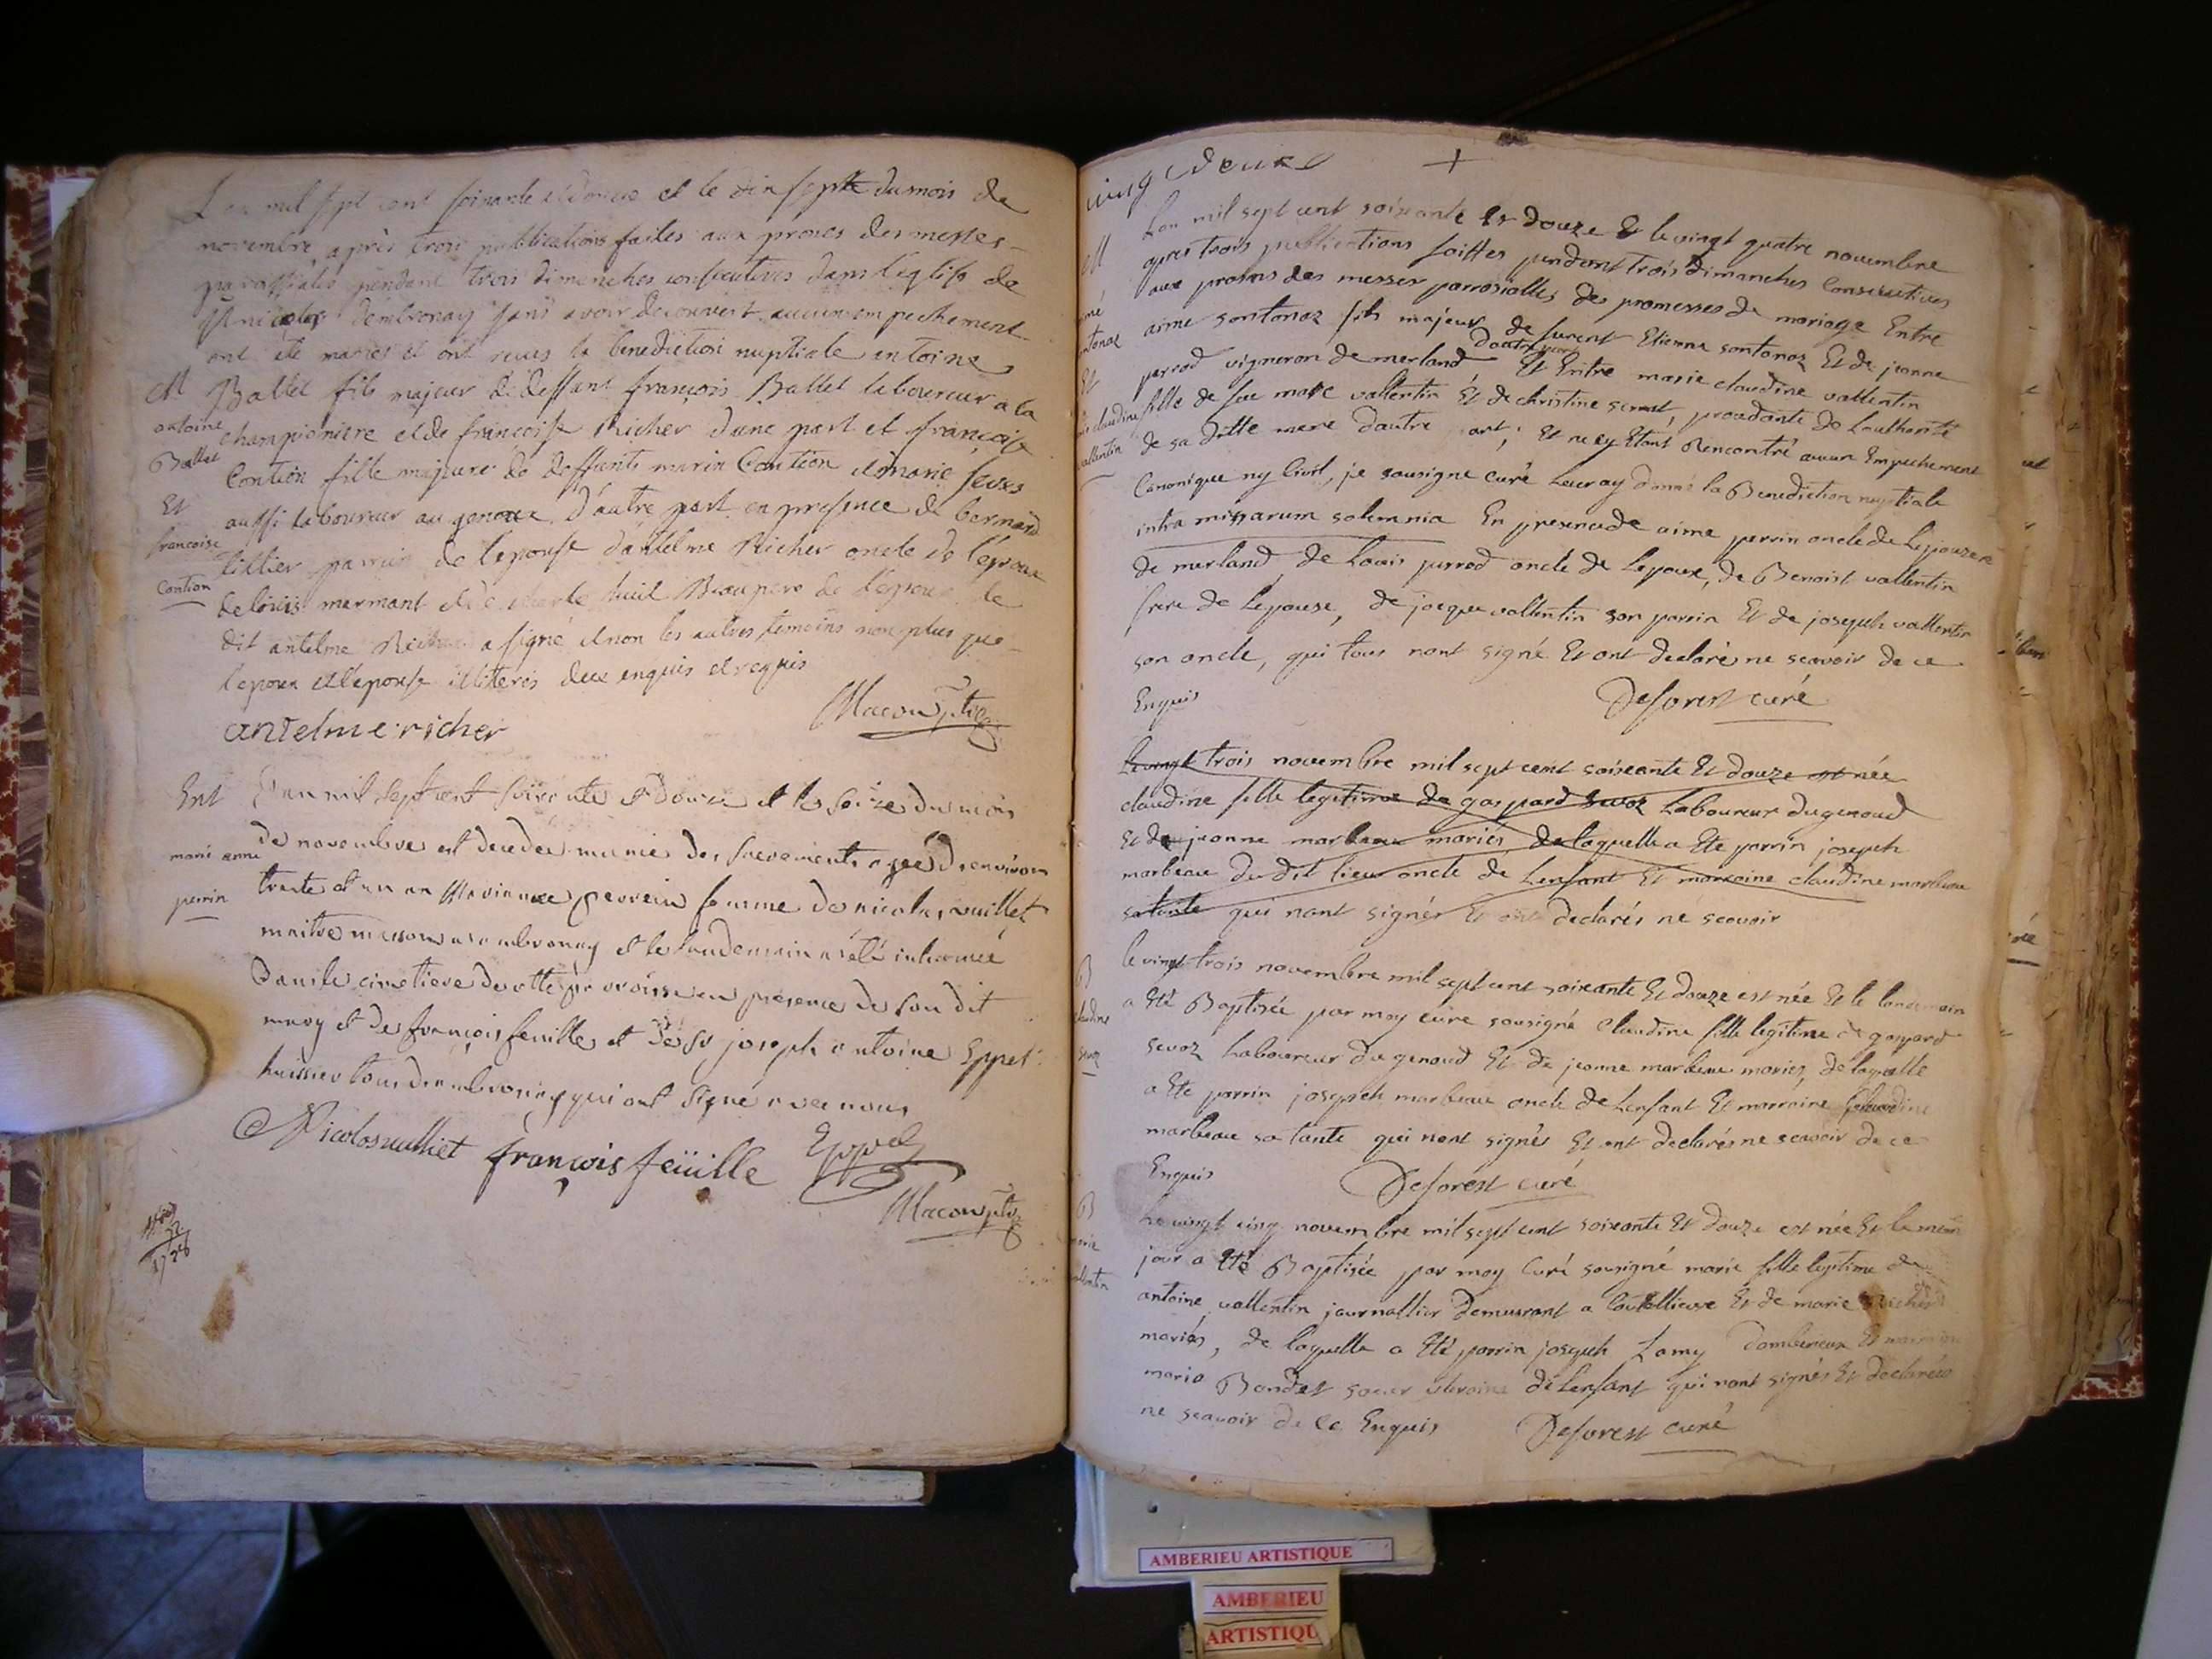 L'an mil sept cent soixante et douze et le dix septe du mois de
novembre, après trois publications faites aux prônes des messes
paroissiales pendant trois dimanches consécutives dans l'eglise de
St nicolas d'embronay sans avoir decouvert aucun empechement
ont ete mariés et ont recus la benediction nuptiale antoine
M Ballet fils majeur de deffunt françois Ballet laboureur a la
antoine championiere et de françoise Richer d'une part et françoise
Ballet
Contion fille majeure de deffunts marin Contion et marie
Et aussi laboureur au genoux d'autre part en presence de bernard
francoise tillier parrain de l'epouse d'antelme Richer oncle de l'epoux
Contion de loüis mermant et de Beaupere de l'epoux le
dit antelme Richer a signé et non les autres temoins non plus que
l'epoux et l'epouse illiterés de ce enquis et requis
antelme richer
Ent L'an mil sept cent soixante et douze et le seize du mois
de novembre est decedee munie des sacrements agée d'environ
marie anne
trente et un an Marianne perrein femme de nicolas vuillet
perrin
maitre masson a ambronay et le lendemain a été inhumée
dans le cimetiere de cette parroisse en présence de son dit
mary et de françois feuille et de Sr joseph antoine Eppel
huissier tous d'ambronay qui ont signé avec nous
Nicolas vulliet françois feüille Eppel
vingt deux +
Lan mil sept cent soixante Et douze Et le vingt quatre novembre
M apres trois publications faittes pendant trois dimanches Consecutives
aux prosnes des messes parrosialles des promesses de mariage Entre
aime sontonaz fils majeur de furent Etienne sontonaz Et de jeanne
dautre part
Et perrod vigneron de merland Et Entre marie claudine vallentin
claudine fille de feu marc vallentin Et de christine, procedante de Lauthorité
vallentin de sa ditte mere dautre part; Et ny Etant Rencontré aucun Empechement
Canonique ny Civil, je sousigne curé Leur ay donné la Benediction nuptiale
intra missarum solemnia En presence de aime perrin oncle de Lepouze
de merland, de Louis perrod oncle de Lepoux, de Benoist vallentin
frere de Lepouse, de jacque vallentin son parrin Et de joseph vallentin
son oncle, qui tous nont signé Et ont declaré ne scavoir de ce
Enquis
Deforest curé
Le vingt trois novembre mil sept cent soixante Et douze est née
claudine fille legitime de gaspard sevoz Laboureur du genoud
Et de jeanne marbeau mariés, de laquelle a Ete parrin joseph
marbeau du dit lieu oncle de Lenfant Et marraine claudine marbeau
sa tante qui nont signés Et ont declarés ne scavoir
B le vingt trois novembre mil sept cent soixante Et douze est née Et le lendemain
claudine a Eté Baptisée par moy curé sousigné Claudine fille legitime de gaspard
sevoz sevoz Laboureur du genoud Et de jeanne marbeau mariés, de laquelle
a Ete parrin joseph marbeau oncle de Lenfant Et marraine Claudine
marbeau sa tante qui nont signés Et ont declarés ne scavoir de ce
Enquis
Deforest curé
B Le vingt cinq novembre mil sept cent soixante Et douze est née Et le même
marie jour a Eté Baptisée par moy Curé sousigné marie fille legitime de
vallentin antoine vallentin journallier demeurant a Coutellieuse Et de marie Richer
mariés, de laquelle a Eté parrin joseph Lamy dambérieux Et marraine
marie Bondet soeur uteraine de Lenfant qui nont signés Et declarées
ne scavoir de ce Enquis
Deforest curé
AMBERIEU ARTISTIQUE
AMBERIEU
ARTISTIQU